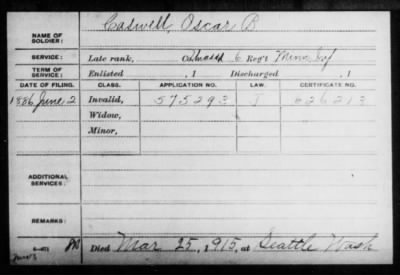 Caswell, Oscar B
NAME OF SOLDIER:
SERVICE: Late rank, Co. 6 Reg't Minn Inf
TERM OF SERVICE: Enlisted , 1 Discharged , 1
DATE OF FILING. CLASS. APPLICATION NO. LAW. CERTIFICATE NO.
1886 June 2 Invalid, 575293 626213
Widow,
Minor,
ADDITIONAL SERVICES:
REMARKS:
Died Mar 25, 1915, at Seattle Wash